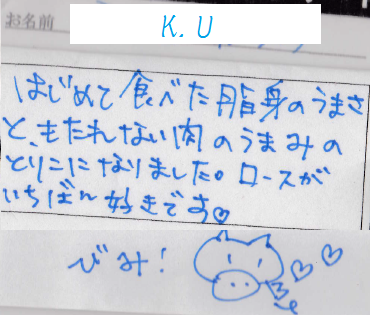 お名前
K.U
はじめて食べた脂身のうまさ
と、もたれない肉のうまみの
とりこになりました。ロースが
いちばん好きです♡
びみ!